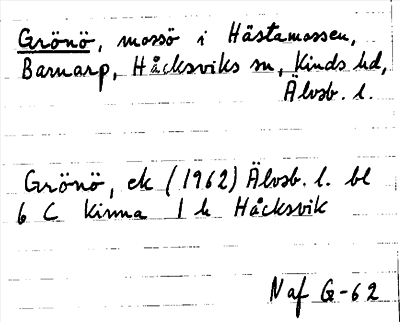 Grönö, mossö i Hästamossen,
Barnarp, Håcksviks sn, Kinds hd,
Älvsb. l.
Grönö, ek (1962) Älvsb. l. bl
6 C Kinna 1 h Håcksvik
Naf G-62